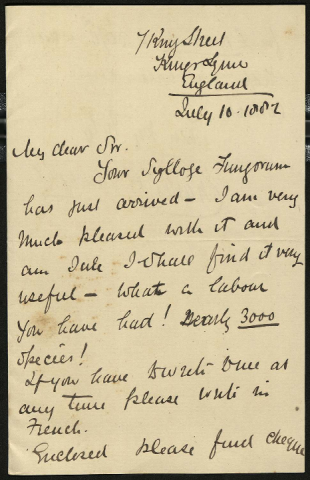 7 King Street
Kings Lynn
England
July 10. 1882
My dear Sir.
Your Sylloge Fungorum
has just arrived – I am very
much pleased with it and
am sure I shall find it very
useful – what a labour
you have had! Nearly 3000
species!
If you have to write me at
any time please write in
French.
Enclosed please find cheque